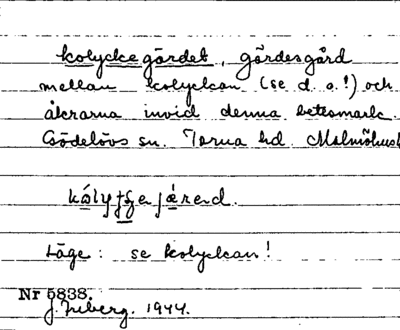 kolyckegärdet, gärdesgård
mellan kolyckan (se d. o.!) och
åkrarna invid denna betesmark.
Gödelövs sn. Torna hd. Malmöhus
Läge: se kolyckan!
Nr 5838.
J. Ineberg. 1944.